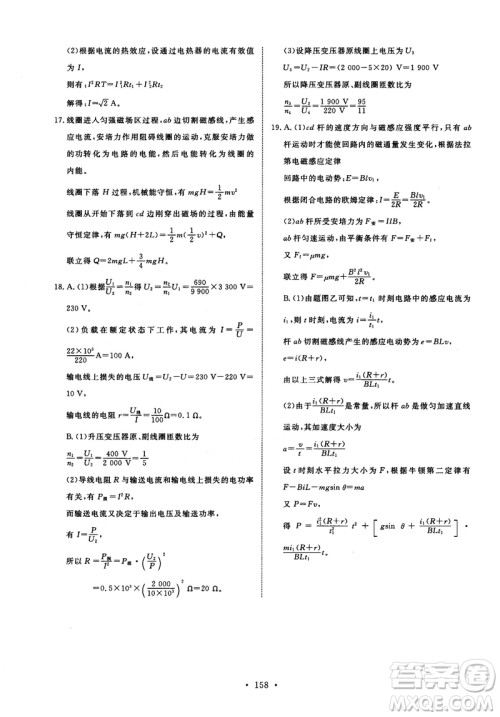 (2)根据电流的热效应,设通过电热器的电流有效值
为 I,
则有:I²RT=I₁²R T/2+I₂²R T/2
解得:I=√2 A
17. 线圈进入匀强磁场区过程,ab 边切割磁感线,产生感
应电流,安培力作用阻碍线圈的运动,克服安培力做
的功转化为电路的电能,电能又通过电阻转化为线圈
的内能
线圈下落 H 过程,机械能守恒,有 mgH=1/2 mv²
线圈从开始下落到 cd 边刚穿出磁场的过程,由能量
守恒定律,有 mg(H+2L)=1/2 m(v/2)²+Q
联立得 Q=2mgL+3/4 mgH
18. A.(1)根据 U₁/U₂=n₁/n₂ 得 U₂=n₂/n₁ U₁=690/9 900×3 300 V=
230 V.
(2)负载在额定状态下工作,其电流为 I=P/U=
22×10³/220 A=100 A,
输电线上损失的电压 U线=U₂-U=10 V
输电线的电阻 r=U线/I=10/100 Ω=0.1 Ω
B.(1)升压变压器原、副线圈匝数比为
n₁/n₂=U₁/U₂=400 V/2 000 V=1/5
(2)导线电阻 R 与输送电流和输电线上损失的电功
率的关系为 P损=I²R,
而输送电流又决定于输送电压及输送功率,
有 I=P/U₂
所以 R=P损/(P/U₂)²=P损·(U₂/P)²
=0.5×10³×(2 000/10×10³)² Ω=20 Ω.
(3)设降压变压器原线圈上电压为 U₃
U₃=U₂-IR=(2 000-5×20)V=1 900 V
所以降压变压器原、副线圈匝数比为
n₃/n₄=U₃/U₄=1 900 V/220 V=95/11
19. A.(1)cd 杆的速度方向与磁感应强度平行,只有 ab
杆运动时才使回路中的磁通量发生变化,根据法拉
第电磁感应定律
回路中的电动势:E=Blv₁
根据闭合电路的欧姆定律:I=E/2R=Blv₁/2R
(2)ab 杆所受安培力 F安=IlB,
ab 杆匀速运动,由平衡关系得:F₁=μmg+F安
又 F₁=μmg+B²l²v₁/2R
B.(1)由题图乙可知,t=t₁ 时刻电路中的感应电流为
i₁,则 t 时刻,电流 i=i₁/t₁ t
ab 杆切割磁感线产生的感应电动势为 e=BLv,
e=i(R+r)
由以上三式解得 v=i₁(R+r)/BLt₁ t
(2)由于 i₁(R+r)/BLt₁ 是常量,所以杆 ab 做匀加速直线
运动,a=v/t=i₁(R+r)/BLt₁
设 t 时刻外力大小为 F,根据牛顿第二定律有
F-BiL-mgsin θ=ma
又 P=Fv,
得 P=i₁²(R+r)/t₁² t²+[gsin θ+i₁(R+r)/BLt₁]
mi₁(R+r)/BLt₁ t
· 158 ·